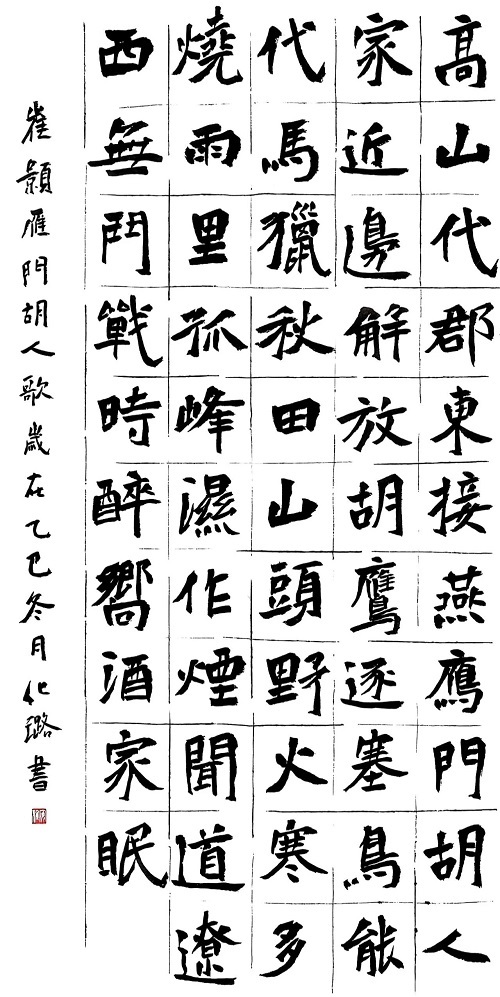 高山代郡東接燕鴈門胡人
家近邊解放胡鷹逐塞鳥能
代馬獵秋田山頭野火寒多
燒雨里孤峰濕作煙聞道遼
西無鬥戰時醉嚮酒家眠
崔顥雁門胡人歌歲在乙巳冬月化璐書